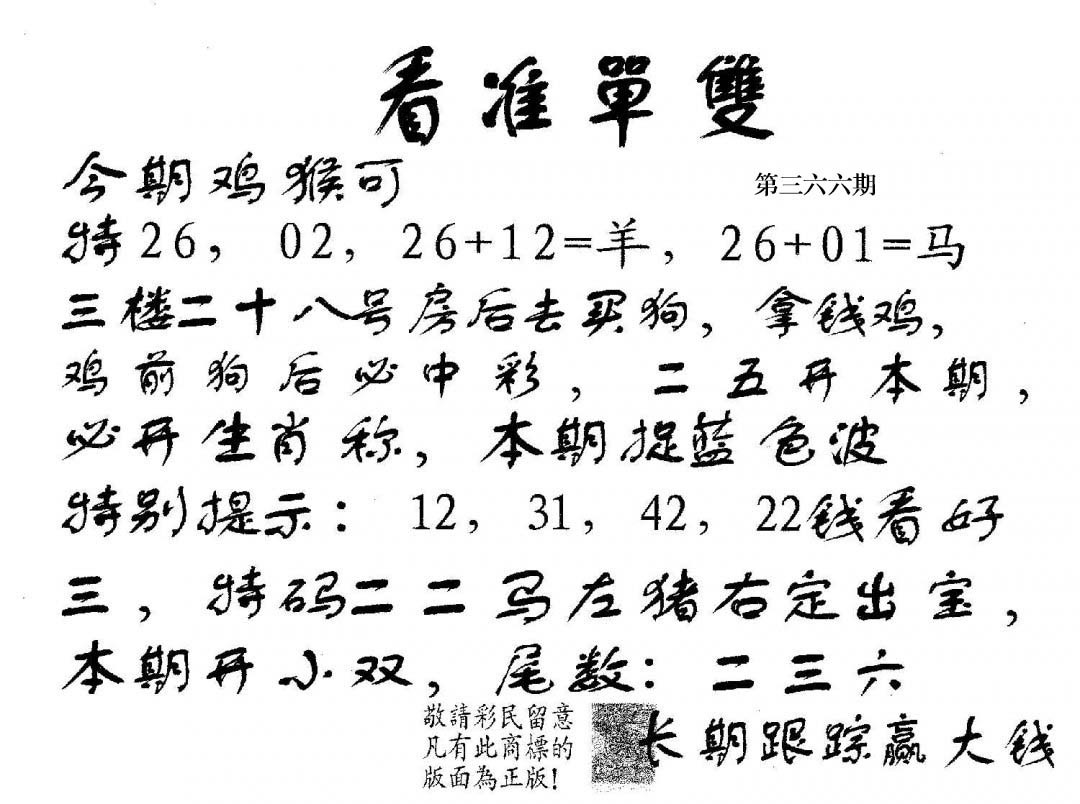 看准單雙
今期鸡猴可
第三六六期
特26，02，26+12=羊，26+01=马
三楼二十八号房后去买狗，拿钱鸡，
鸡前狗后必中彩，二五开本期，
必开生肖称，本期捉蓝色波
特别提示：12，31，42，22钱看好
三，特码二二马左猪右定出宝，
本期开小双，尾数：二三六
敬請彩民留意
凡有此商標的
版面為正版！
长期跟踪赢大钱